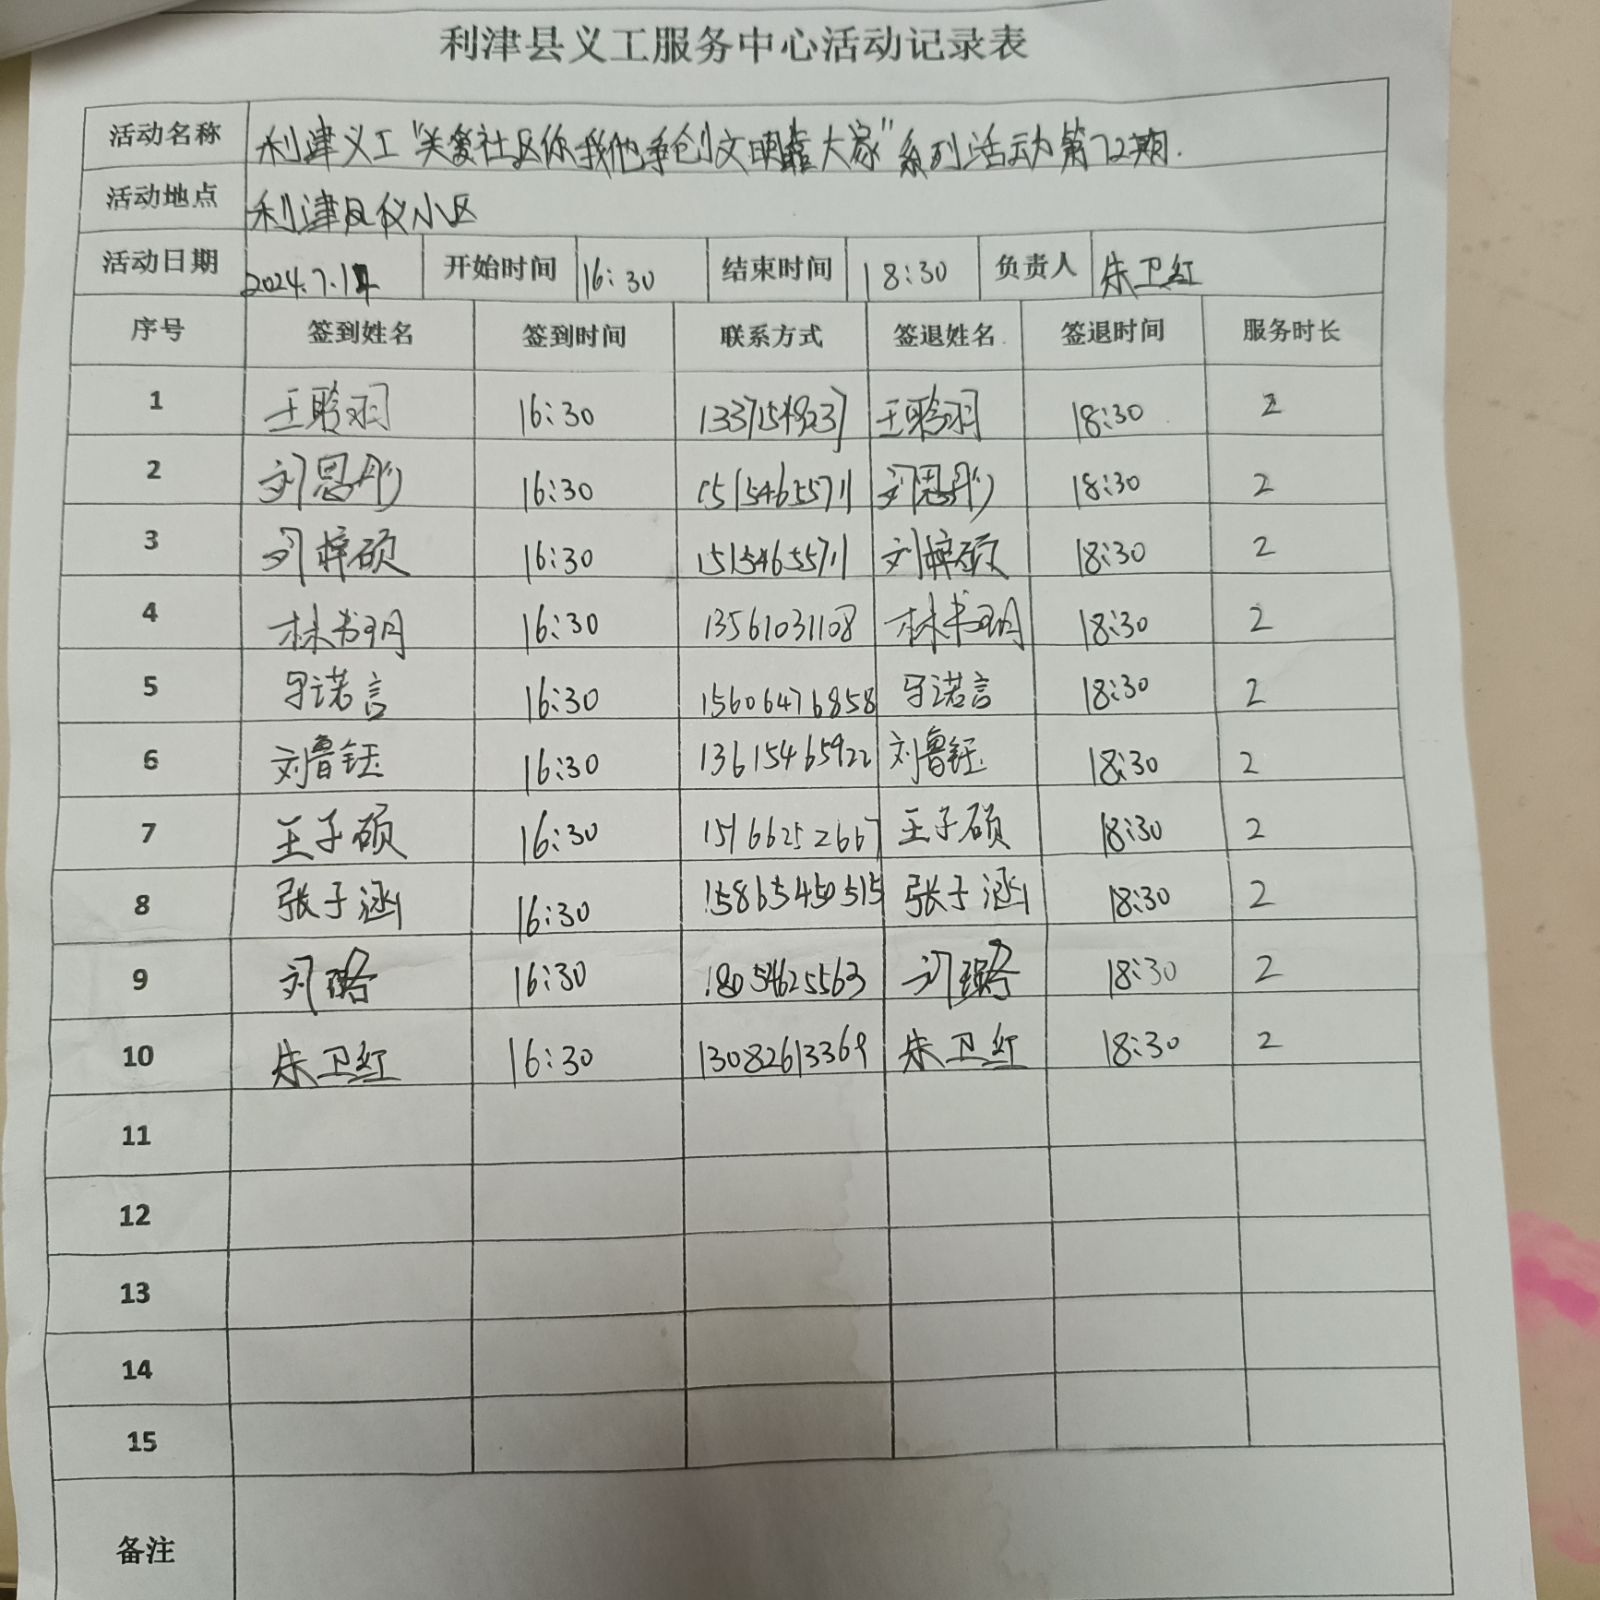 利津县义工服务中心活动记录表
活动名称 利津义工“关爱社区你我他争创文明靠大家”系列活动第72期.
活动地点 利津凤仪小区
活动日期 2024.7.1 开始时间 16:30 结束时间 18:30 负责人 朱卫红
序号 签到姓名 签到时间 联系方式 签退姓名 签退时间 服务时长
1 王聆羽 16:30 王聆羽 18:30 2
2 刘思彤 16:30 15154655711 刘思彤 18:30 2
3 刘梓硕 16:30 15154655711 刘梓硕 18:30 2
4 林书玥 16:30 13561031108 林书玥 18:30 2
5 诺言 16:30 15606476858 诺言 18:30 2
6 刘鲁钰 16:30 13615465922 刘鲁钰 18:30 2
7 王子硕 16:30 15166252667 王子硕 18:30 2
8 张子涵 16:30 15865450515 张子涵 18:30 2
9 刘璐 16:30 18054625563 刘璐 18:30 2
10 朱卫红 16:30 13082613369 朱卫红 18:30 2
11
12
13
14
15
备注